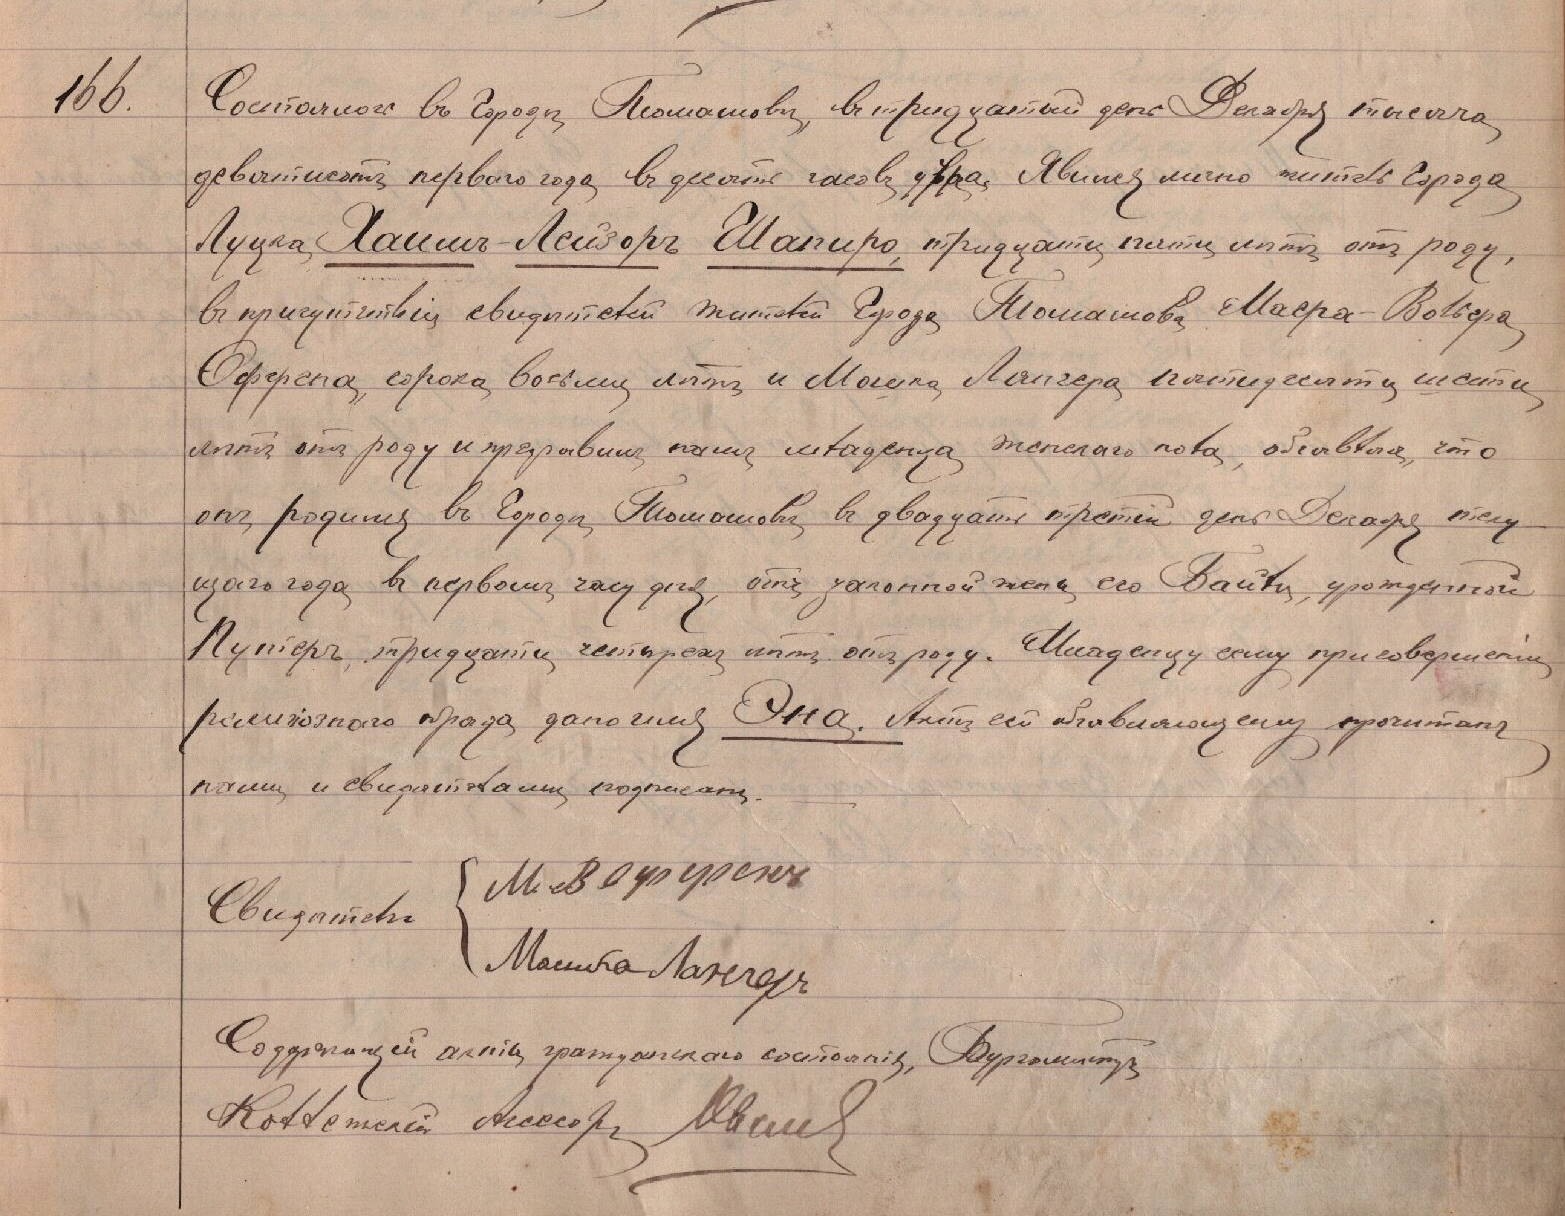 166.
Состоялось въ Городѣ Томашовѣ, въ тридцатый день Декабря тысяча
девятисотъ перваго года въ десять часовъ утра. Явился лично житель Города
Луцка Хаимъ-Лейзоръ Шапиро, тридцати пяти лѣтъ отъ роду,
въ присутствіи свидѣтелей жителей Города Томашова Маера-Вольфа
Оферена, сорока восьми лѣтъ и Мошка Лангера пятидесяти шести
лѣтъ отъ роду и предъявилъ намъ младенца женскаго пола, объявляя, что
онъ родился въ Городѣ Томашовѣ въ двадцать третій день Декабря теку-
щаго года въ первомъ часу дня, отъ законной жены его Байлы, урожденной
Путеръ, тридцати четырехъ лѣтъ отъ роду. Младенцу сему при совершеніи
религіознаго обряда дано имя Эна. Актъ сей объявляющему прочитанъ
нами и свидѣтелями подписанъ.
Свидѣтели
М. В Оференъ
Мошка Лангеръ
Содержащій акты гражданскаго состоянія, Бургомистръ
Коллежскій Асессоръ